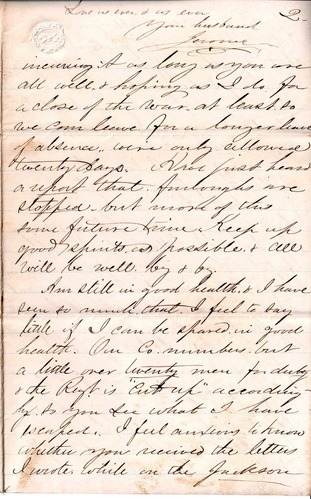 Love as ever & as ever 2-
Your husband
Jerome
incuring it as long as you are
all will. & hoping as I do for
a close of the war. at least. so
we can leave. for a longer leave
of absence. were only allowed
twenty days. Have just heard
a report that. furloughs are
stopped. but more of this
some future time. Keep up
good spirits, as possible. & all
will be well. by & by.
Am still in good health. & I have
seen so much. that. I feel to say
little if I can be spared. in good
health. Our Co. numbers. but
a little over twenty men for duty
& the Regt. is "cut up" according
ly. so you see what I have
escaped. I feel anxious to know
whether you received the letters
I wrote while on the Jackson